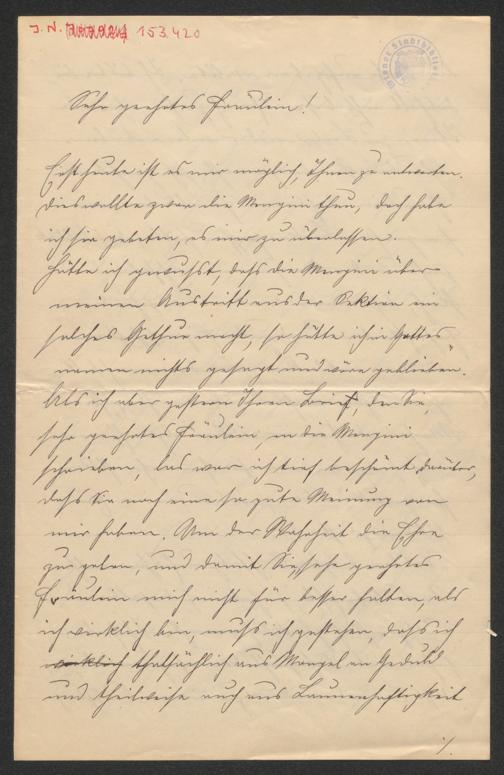 J. N. 153.420
Wiener Stadtbibl
Sehr geehrtes Fräulein!
Erst heute ist es mir möglich, Ihnen zu antworten.
Dies wollte zwar die Menzini thun, doch habe
ich sie gebeten, es mir zu überlassen.
Hätte ich gewusst, dass die Menzini über
meinen Austritt aus der Sektion ein
solches Gethue macht, so hätte ich in Gottes
namen nichts gesagt und wäre geblieben.
Als ich aber gestern Ihren Brief, den Sie,
sehr geehrtes Fräulein an die Menzini
schrieben, las war ich tief beschämt darüber,
dass Sie noch eine so gute Meinung von
mir haben. Um der Wahrheit die Ehre
zu geben, und damit Sie, sehr geehrtes
Fräulein mich nicht für besser halten, als
ich wirklich bin, muss ich gestehen, dass ich
wirklich thatsächlich aus Mangel an Geduld
und theilweise auch aus Launenhaftigkeit
./.